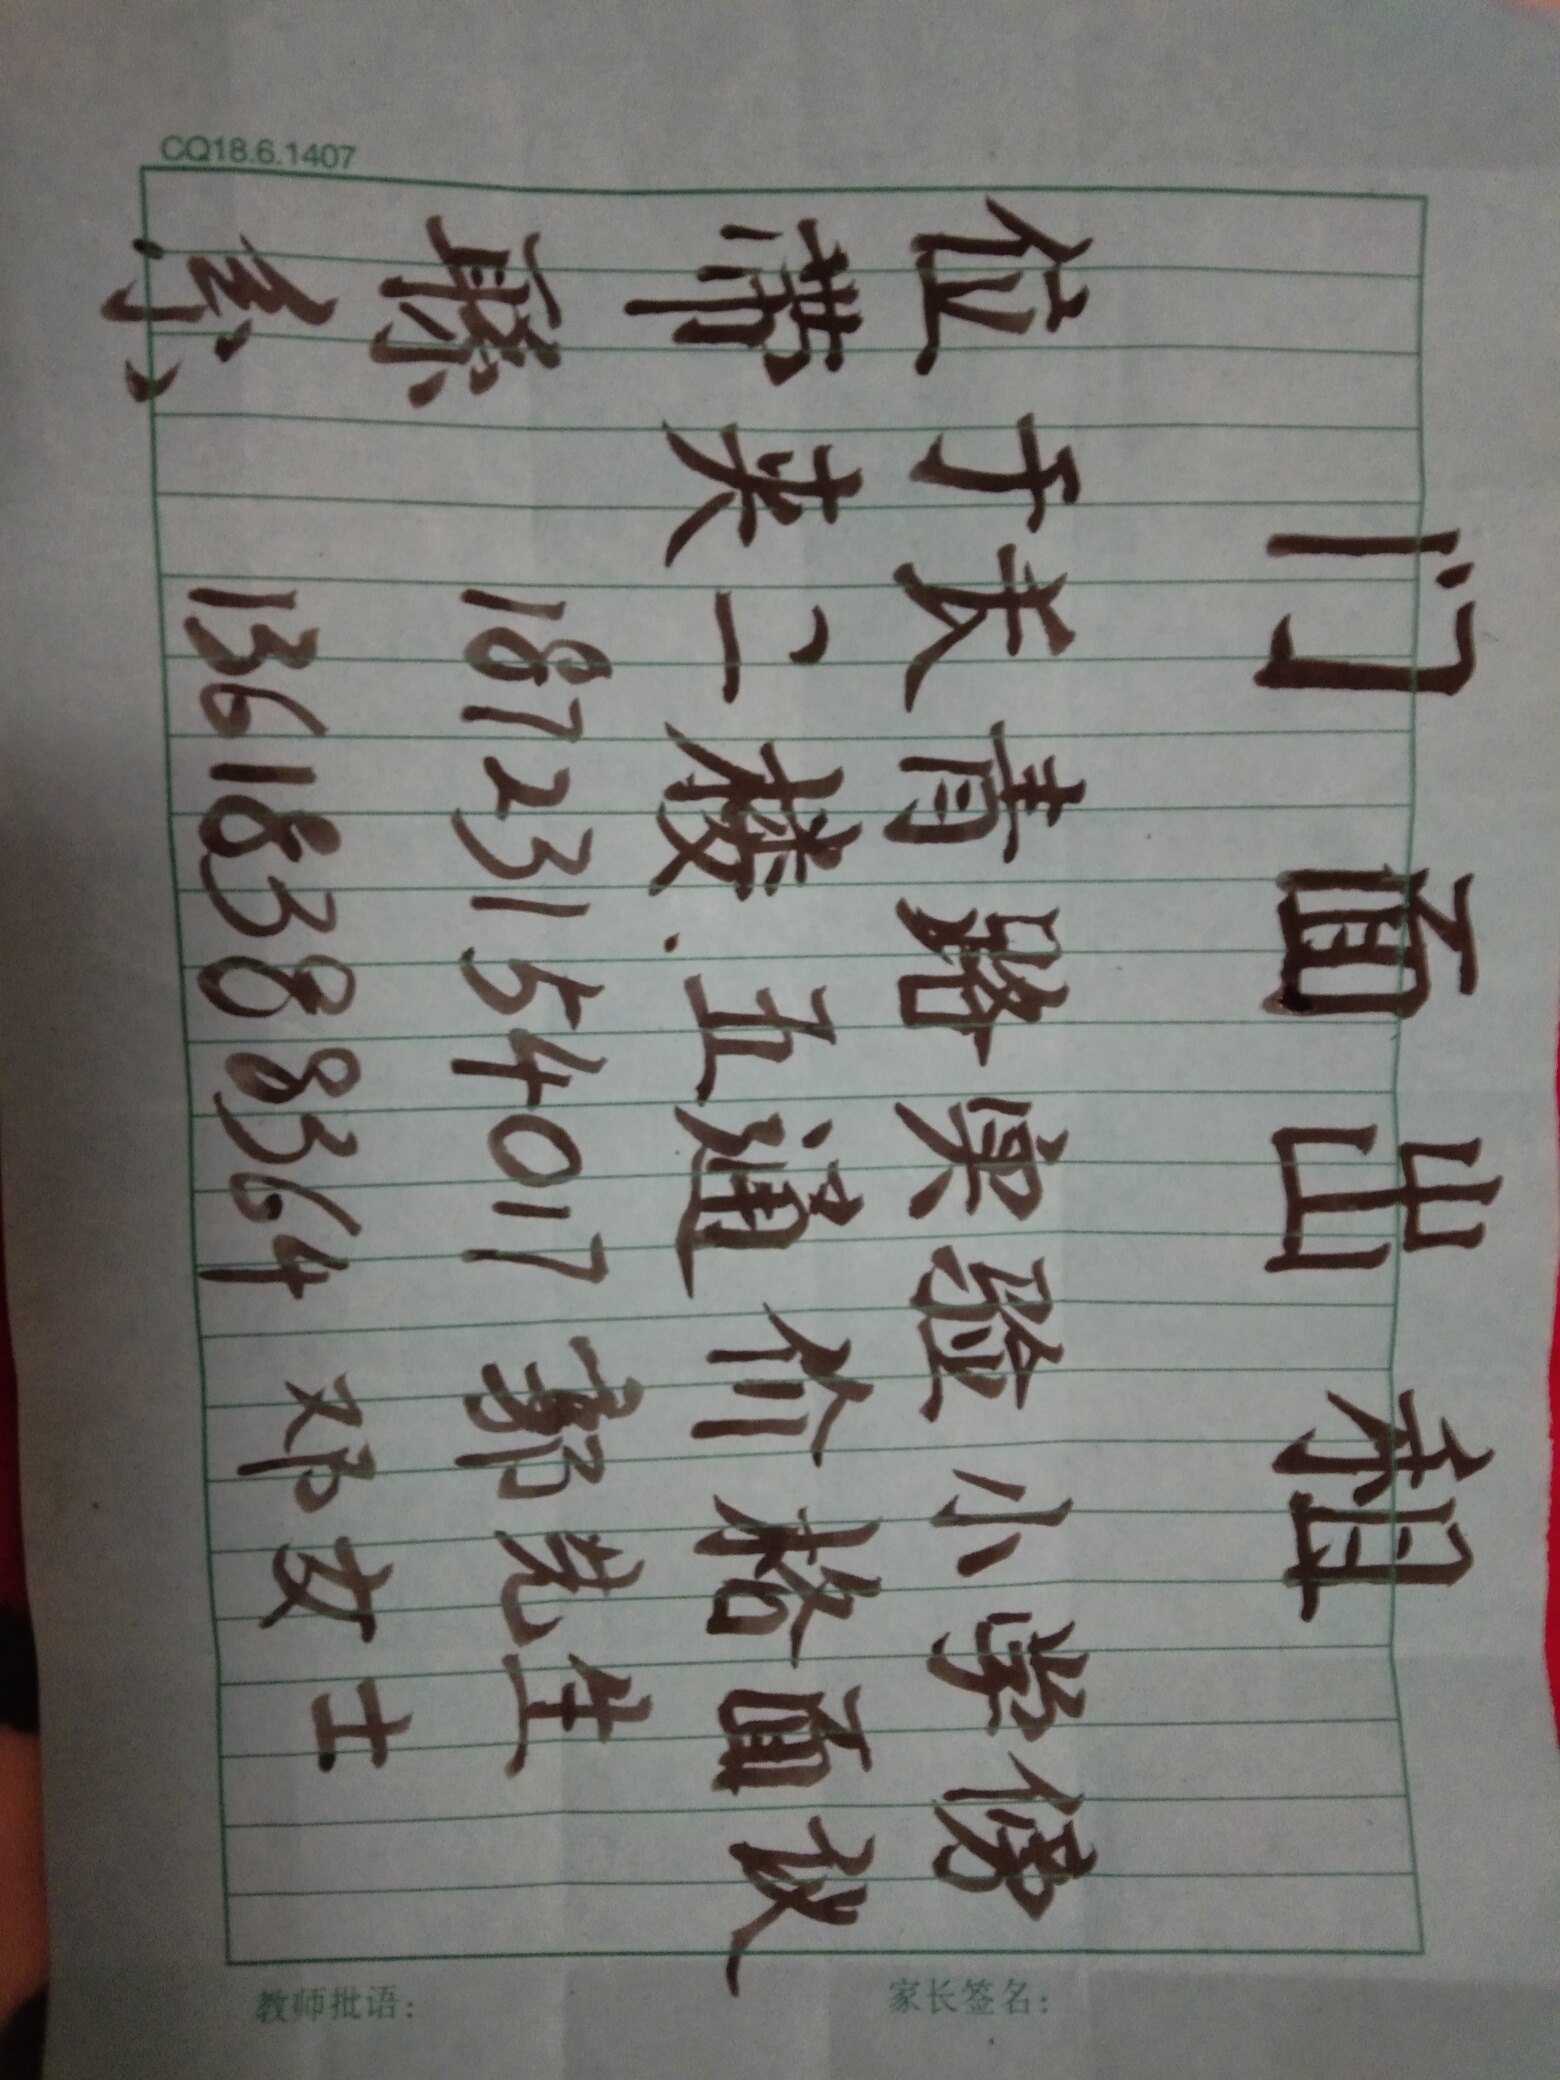 门面出租
位于长青路实验小学傍
带夹二楼.五通价格面议
联 18723154017 郭先生
系: 13618388364 邓女士
CQ18.6.1407
家长签名：
教师批语：